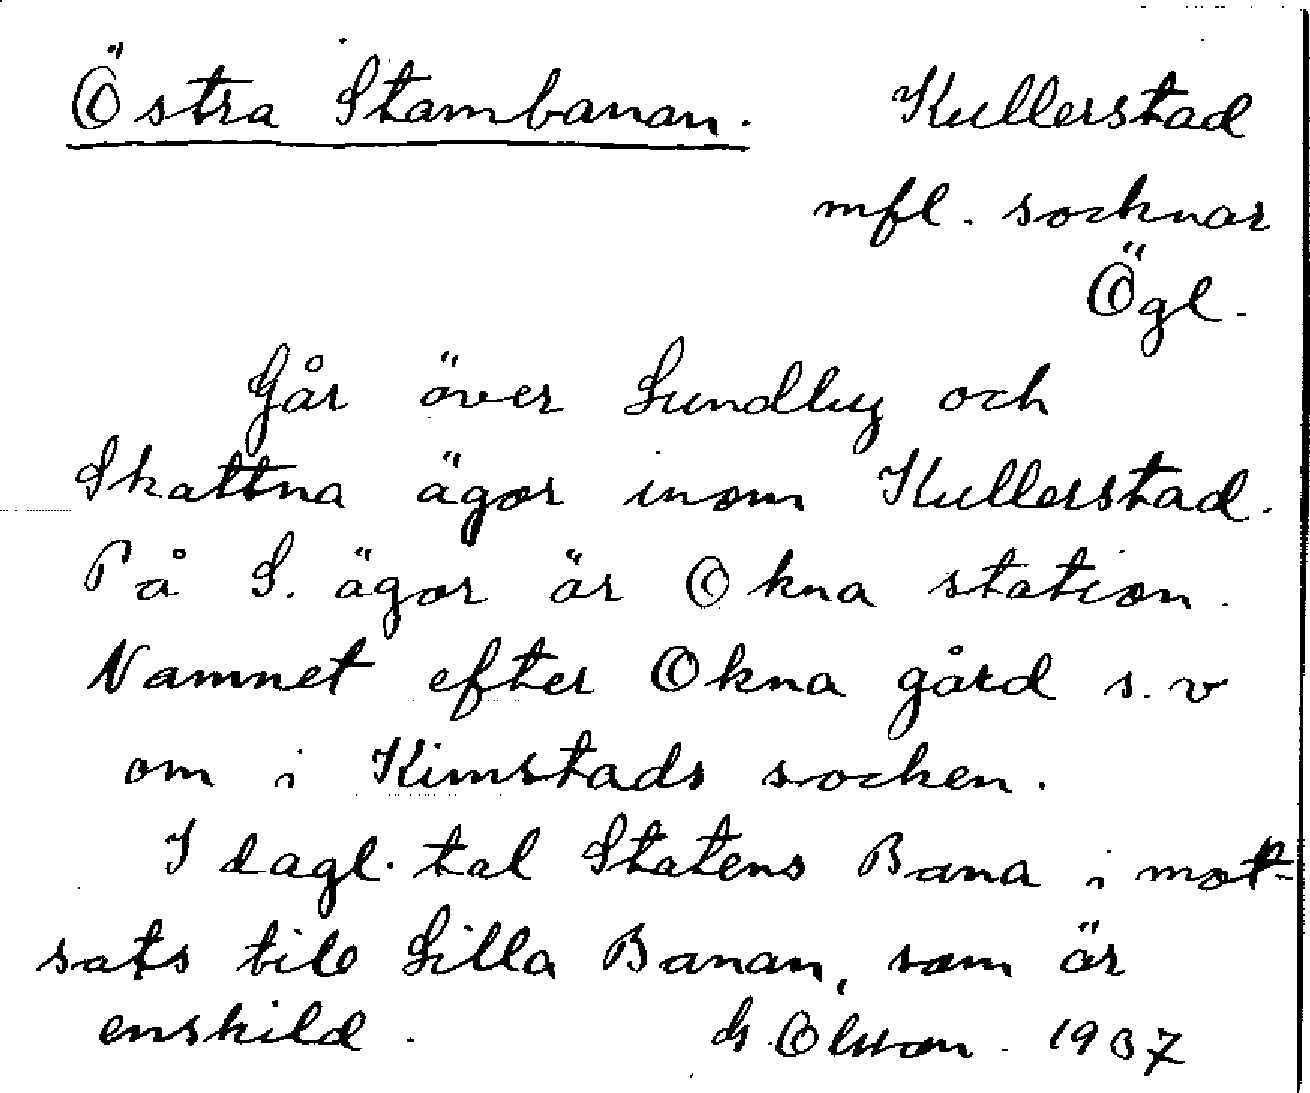 Östra Stambanan. Kullerstad
mfl. socknar
Ögl.
Går över Sundby och
Skattna ägor inom Kullerstad.
På S. ägor är Okna station.
Namnet efter Okna gård s.v
om i Kimstads socken.
I dagl. tal Statens Bana i mot-
sats till Lilla Banan, som är
enskild. G. Olsson. 1937